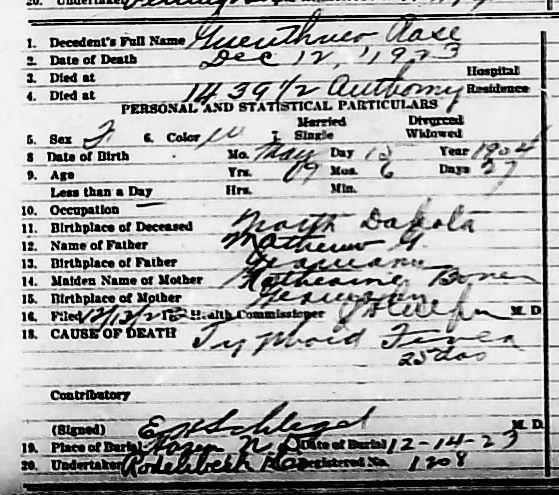 20. Undertaker
1. Decedent's Full Name Guenthner Rose
2. Date of Death Dec 12, 1923
3. Died at Hospital
4. Died at 1439 1/2 Anthony Residence
PERSONAL AND STATISTICAL PARTICULARS
5. Sex F 6. Color W 7. Married Single Divorced Widowed
8 Date of Birth Mo. May Day 15 Year 1904
9. Age Yrs. 19 Mos. 6 Days 27
Less than a Day — Hrs. Min.
10. Occupation
11. Birthplace of Deceased North Dakota
12. Name of Father Mathew G.
13. Birthplace of Father Germany
14. Maiden Name of Mother Katherine
15. Birthplace of Mother Germany
16. Filed 12/13/23 Health Commissioner M. D.
18. CAUSE OF DEATH Typhoid Fever
25 das
Contributory
(Signed) E H Schlegel M. D.
19. Place of Burial Hazen N D Date of Burial 12-14-23
20. Undertaker Registered No. 1208